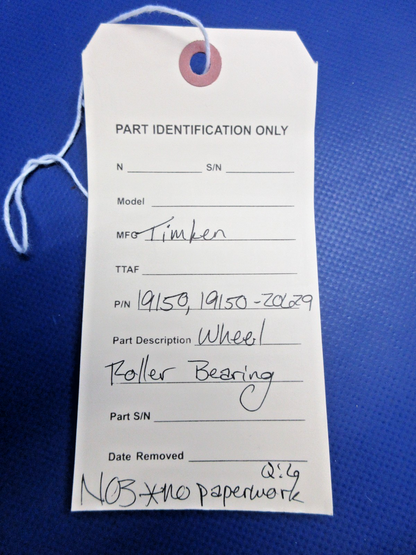 PART IDENTIFICATION ONLY
N ______ S/N ______
Model ______
MFG Timken
TTAF ______
P/N 19150, 19150-20629
Part Description Wheel
Roller Bearing
Part S/N ______
Date Removed ______
NOS *no paperwork